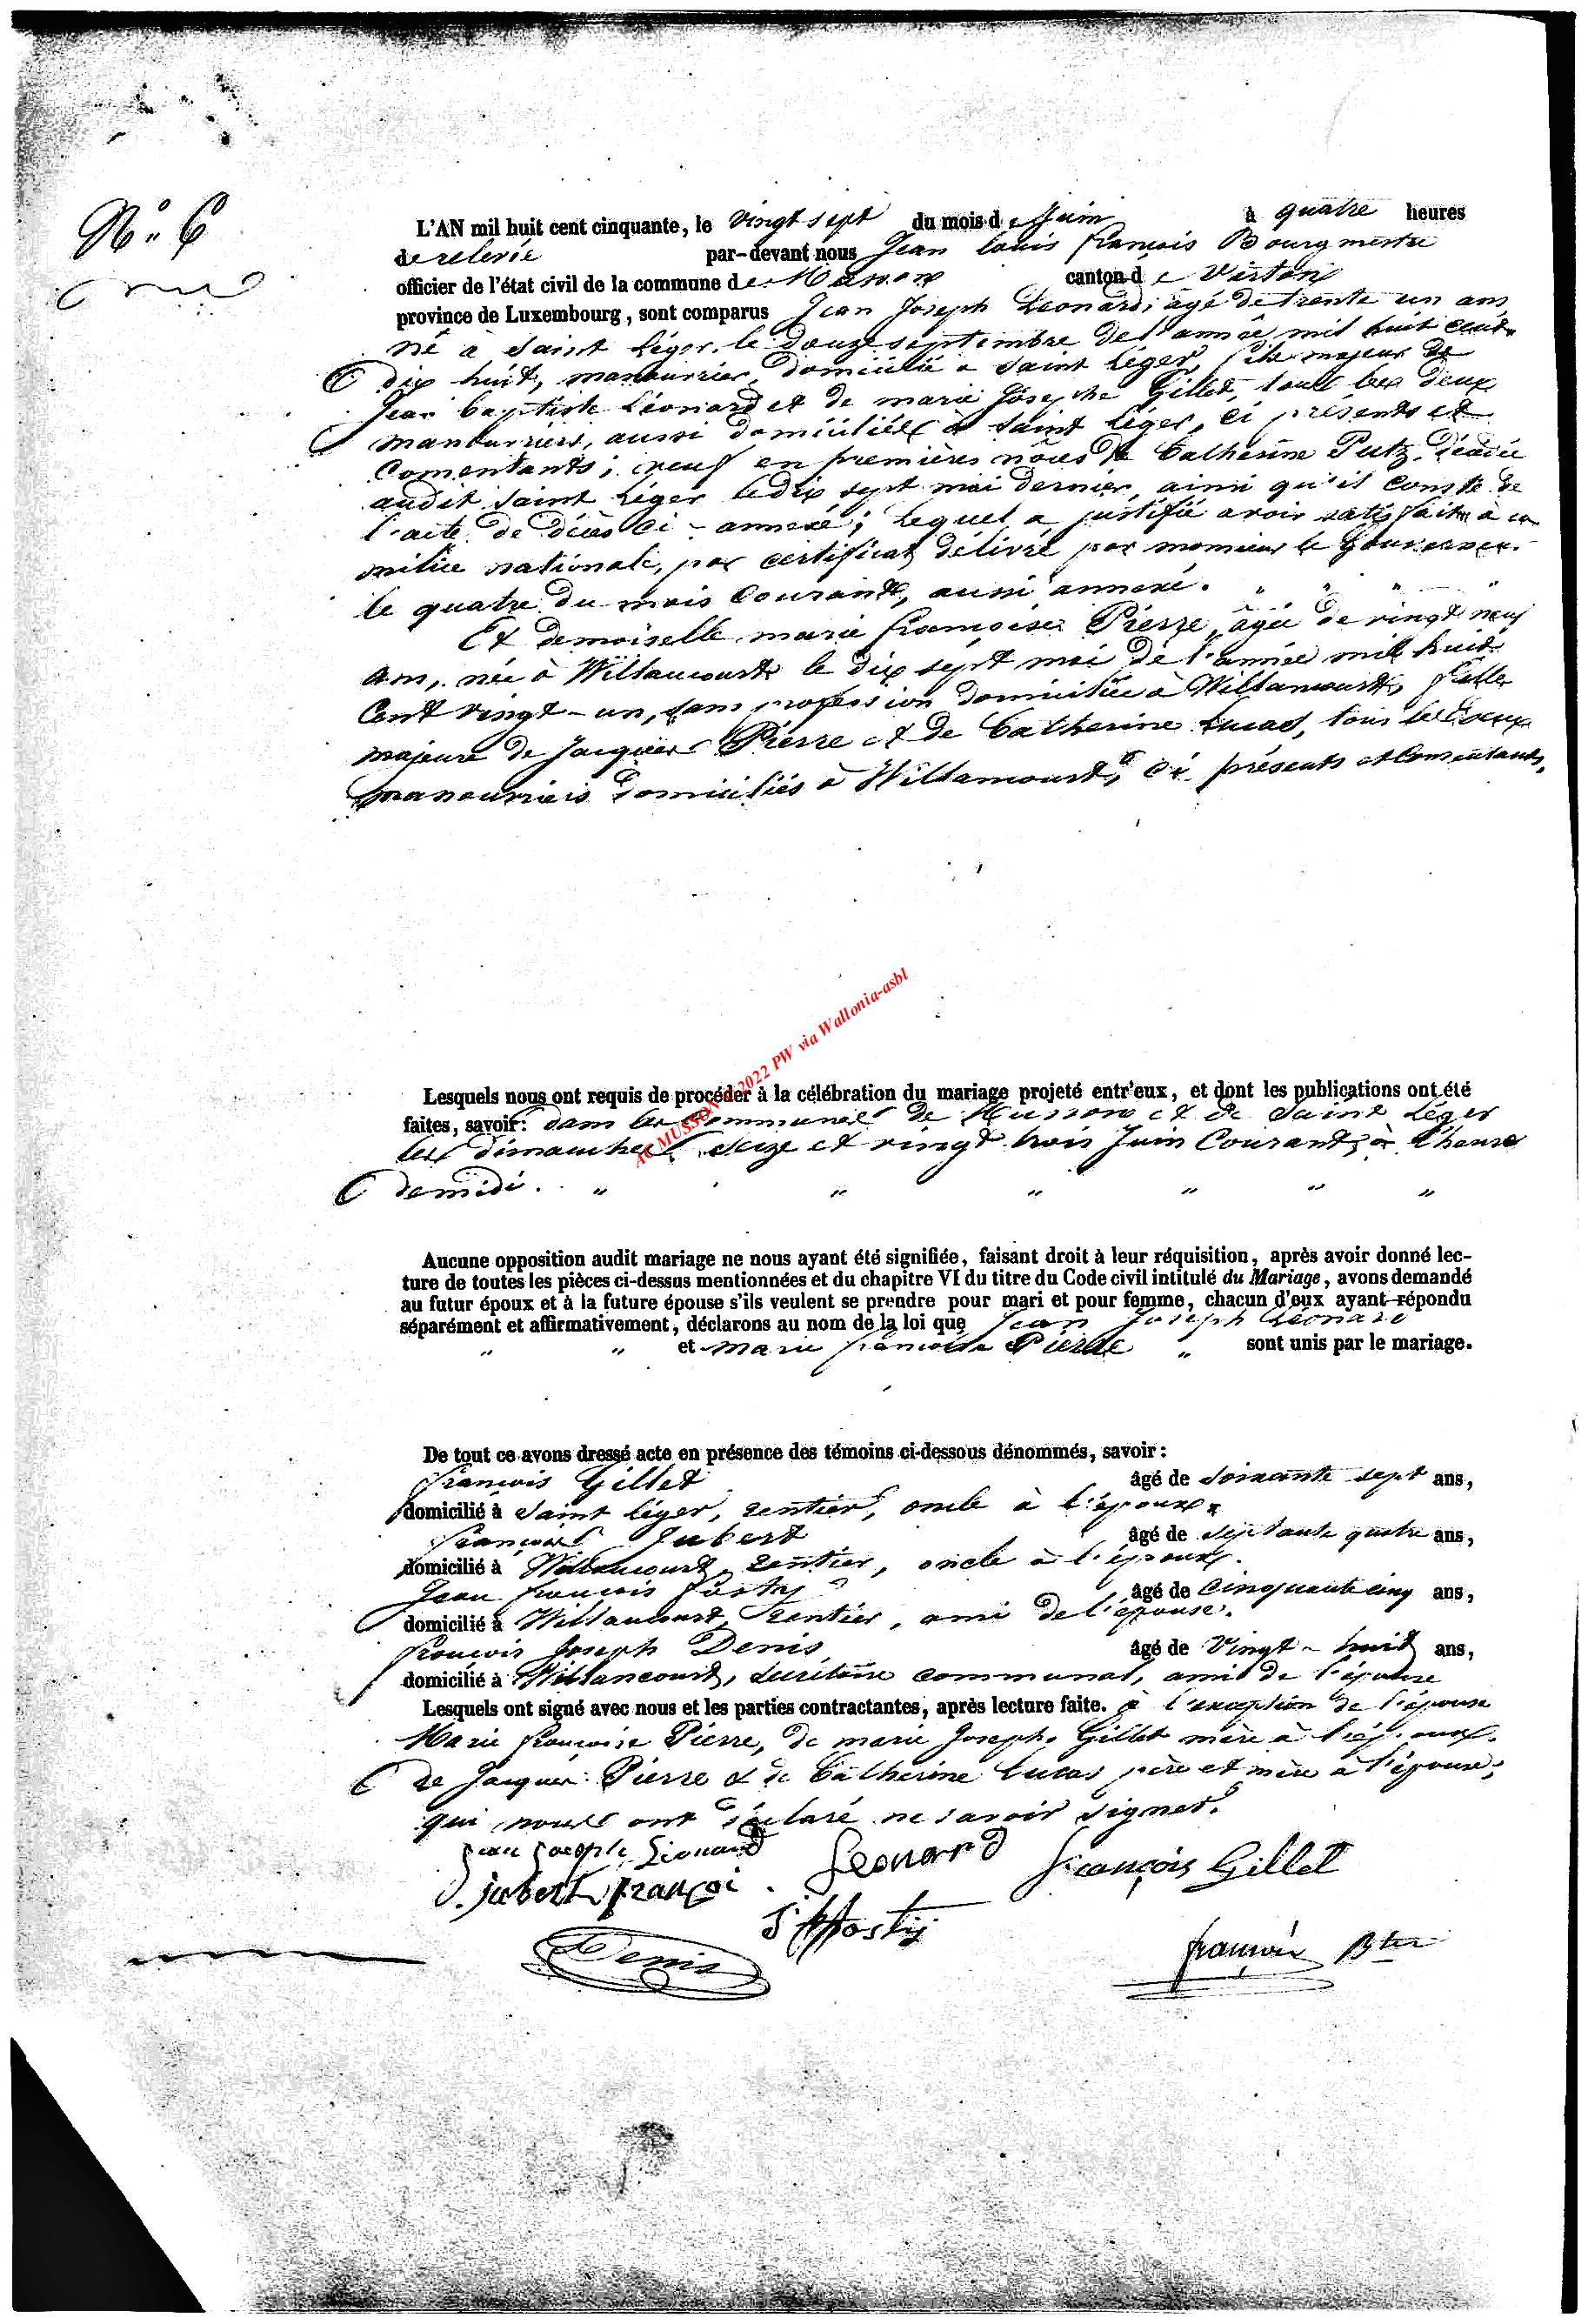 N° 6
L'AN mil huit cent cinquante, le vingt sept du mois de Juin à quatre heures
de relevée par-devant nous Jean Louis françois Bourgmestre
officier de l'état civil de la commune de Musson canton de Virton
province de Luxembourg, sont comparus Jean Joseph Leonard, âgé de trente un ans
né à Saint Léger, le douze septembre de l'année mil huit cent
dix huit, manouvrier, domicilié à Saint Léger, fils majeur de
Jean baptiste Léonard et de marie Josephe Gillet, tous les deux
manouvriers, aussi domiciliés à Saint Léger, ci présents et
Consentants; veuf en premières nôces de Catherine Putz, décédée
audit Saint Léger le dix sept mai dernier, ainsi qu'il conste de
l'acte de décès ci-annexé; lequel a justifié avoir satisfait à la
milice nationale, par certificat délivré par monsieur le Gouverneur
le quatre du mois Courant, aussi annexé. " " " "
Et demoiselle marie françoise Pierre, âgée de vingt neuf
ans, née à Willancourt le dix sept mai de l'année mil huit
Cent vingt-un, sans profession domiciliée à Willancourt, fille
majeure de Jacques Pierre et de Catherine Lucas, tous les deux
manouvriers domiciliés à Willancourt, ci présents et Consentants.
AC MUSSON 2022 PW via Wallonia-asbl
Lesquels nous ont requis de procéder à la célébration du mariage projeté entr'eux, et dont les publications ont été
faites, savoir: dans les Communes de Musson et de Saint Léger
les dimanches seize et vingt trois Juin Courant, à l'heure
de midi. " " " " " "
Aucune opposition audit mariage ne nous ayant été signifiée, faisant droit à leur réquisition, après avoir donné lec-
ture de toutes les pièces ci-dessus mentionnées et du chapitre VI du titre du Code civil intitulé du Mariage, avons demandé
au futur époux et à la future épouse s'ils veulent se prendre pour mari et pour femme, chacun d'eux ayant répondu
séparément et affirmativement, déclarons au nom de la loi que Jean Joseph Léonard
" " et marie françoise Pierre " sont unis par le mariage.
De tout ce avons dressé acte en présence des témoins ci-dessous dénommés, savoir:
françois Gillet âgé de soixante sept ans,
domicilié à Saint Léger, rentier, oncle à l'époux.
françois Jubert âgé de septante quatre ans,
domicilié à Willancourt, rentier, oncle à l'époux.
Jean françois âgé de Cinquante cinq ans,
domicilié à Willancourt, rentier, ami de l'épouse.
françois Joseph Denis âgé de Vingt-huit ans,
domicilié à Willancourt, secrétaire communal, ami de l'épouse
Lesquels ont signé avec nous et les parties contractantes, après lecture faite. à l'exception de l'épouse
Marie françoise Pierre, de marie Josephe Gillet mère à l'époux,
de Jacques Pierre & de Catherine Lucas père et mère à l'épouse;
qui nous ont déclaré ne savoir signer.
Jean Joseph Léonard Leonard françois Gillet
jubert françoi
Denis françois Btre